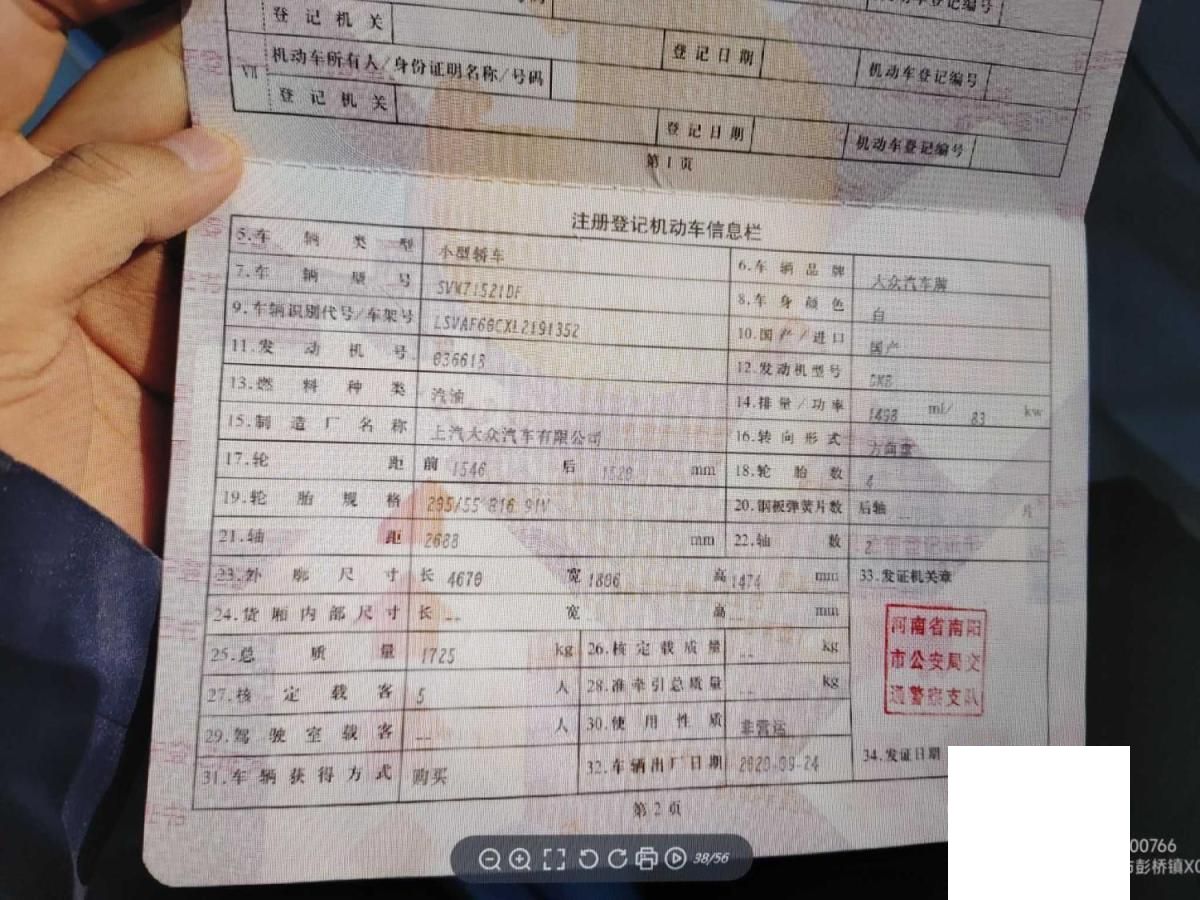 登记机关
登记编号
登记日期
机动车登记编号
VII 机动车所有人/身份证明名称/号码
登记机关
登记日期
机动车登记编号
第1页
注册登记机动车信息栏
5.车辆类型 小型轿车 6.车辆品牌 大众汽车牌
7.车辆型号 SVW71521DF 8.车身颜色 白
9.车辆识别代号/车架号 10.国产/进口 国产
11.发动机号 036613 12.发动机型号
13.燃料种类 汽油 14.排量/功率 1498 ml/ 83 kw
15.制造厂名称 上汽大众汽车有限公司 16.转向形式 方向盘
17.轮距 前 1546 后 1520 mm 18.轮胎数 4
19.轮胎规格 205/55 R16 91V 20.钢板弹簧片数 后轴 -- 片
21.轴距 2688 mm 22.轴数 2
23.外廓尺寸 长 4670 宽 1806 高 1474 mm 33.发证机关章
24.货厢内部尺寸 长 -- 宽 -- 高 -- mm
河南省南阳
市公安局交
通警察支队
25.总质量 1725 kg 26.核定载质量 -- kg
27.核定载客 5 人 28.准牵引总质量 -- kg
29.驾驶室载客 -- 人 30.使用性质 非营运
31.车辆获得方式 购买 32.车辆出厂日期 2020-09-24 34.发证日期
第2页
38/56
00766
彭桥镇X0